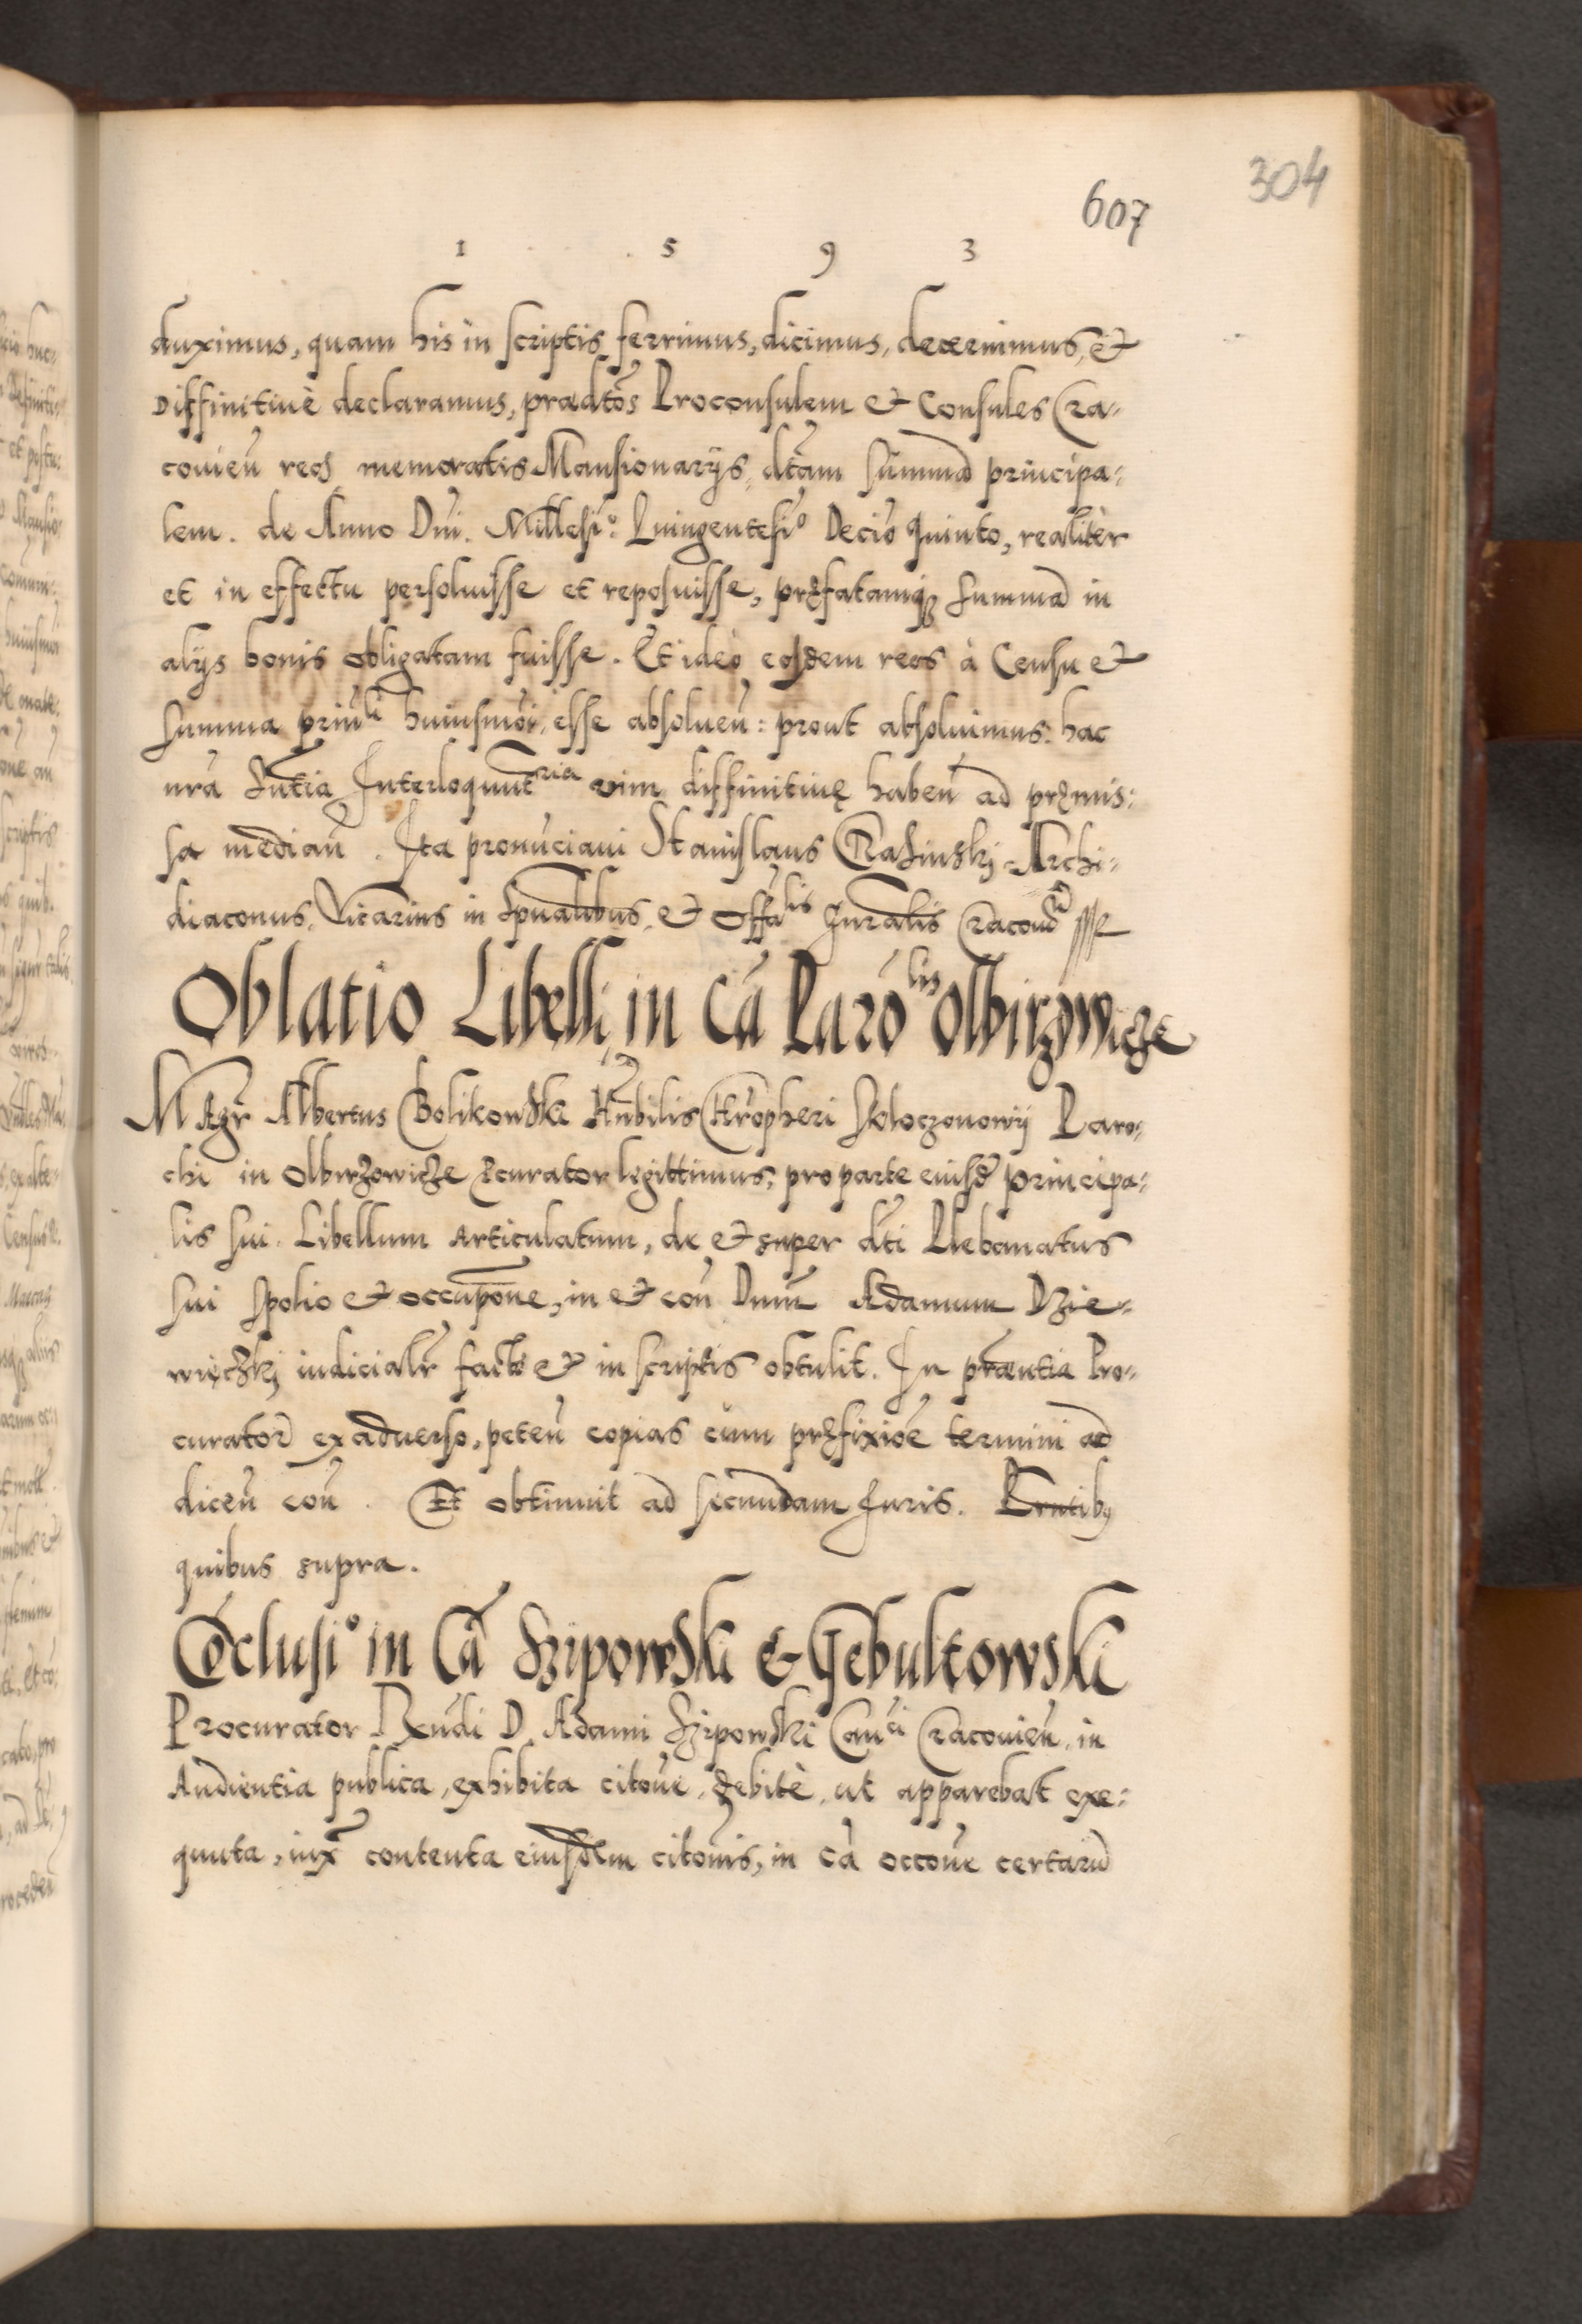 304
607
1 5 9 3
duximus, quam his in scriptis ferrimus, dicimus, decernimus, et
Diffinitiuè declaramus, praedtos Proconsulem et Consules Cra-
couien reos memoratis Mansionarijs, dtam summā principa-
lem. de Anno Dni. Millesi° Quingentesi° Decio Quinto, realiter
et in effectu persoluisse et reposuisse, pręfatamq₃ summā in
alijs bonis obligatam fuisse. Et ideo eosdem reos à Censu et
summa prin^li huiusmoi, esse absoluen: prout absoluimus. hac
nra Sntia Interloqunt^ria vim diffinitiuę haben ad pręmis-
sa median. Ita pronuciaui Stanislaus Crasinskj Archi-
diaconus, Vicarius in Spualibus, et Offa^lis gnralis Cracouien
Oblatio Libelli in Cā Paro^lis Olbirzowicze
Magr Albertus Bolikowski Hnbilis Chropheri Paro-
chi in Olbirzowicze Pcurator legittimus, pro parte eiusde principa-
lis sui Libellum Articulatum, de et super dti Plebanatus
sui spolio et occupone, in et con Dnum Adamum Dzie-
więczkj iudicialr facto et in scriptis obtulit. In pracntia Pro-
curator ex aduerso, peten copias cum pręfixioe termini ad
dicen con. Et obtinuit ad secundam Juris. Prntib₉
quibus supra.
Coclusi° in Cā Szipowski & Gebultowski
Procurator Rxndi D. Adami Szipowski Can^ci Cracouien, in
Audientia publica, exhibita citone, debitè, ut apparebat exe-
quuta, iux contenta eiusdem citonis, in cā occone certarū